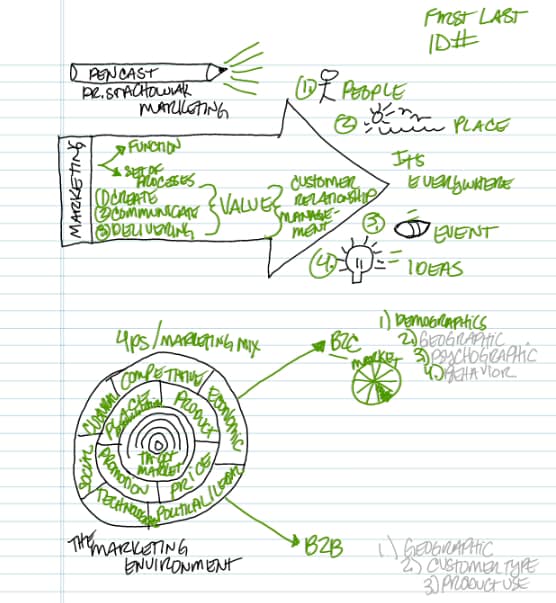 FIRST LAST
ID#
PENCAST
DR. STACHOWIAK
MARKETING
① PEOPLE
② PLACE
ITS
EVERYWHERE
③ EVENT
④ IDEAS
MARKETING
FUNCTION
SET OF
PROCESSES
① CREATE
② COMMUNICATE
③ DELIVERING
VALUE
CUSTOMER
RELATIONSHIP
MANAGE-
MENT
4PS/MARKETING MIX
COMPETITIVE
ECONOMIC
POLITICAL/LEGAL
SOCIAL
PLACE
PRODUCT
PRICE
PROMOTION
TARGET
MARKET
THE MARKETING
ENVIRONMENT
B2C
MARKET
1) DEMOGRAPHICS
2) GEOGRAPHIC
3) PSYCHOGRAPHIC
4) BEHAVIOR
B2B
1) GEOGRAPHIC
2) CUSTOMER TYPE
3) PRODUCT USE